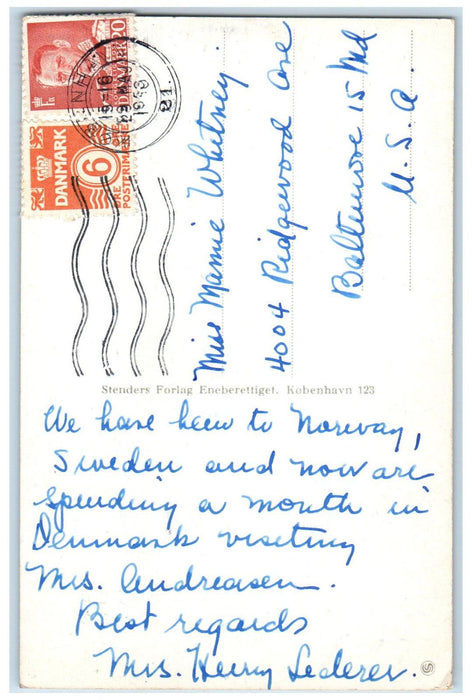 DANMARK 20
DANMARK
6
ØRE
POSTFRIM
1950
21.
Miss Mamie Whitney
4004 Ridgewood Ave
Baltimore 15 Md
U.S.A.
Stenders Forlag Eneberettiget. København 123
We have been to Norway,
Sweden and now are
spending a month in
Denmark visiting
Mrs. Andreasen.
Best regards
Mrs. Henry Lederer.
S